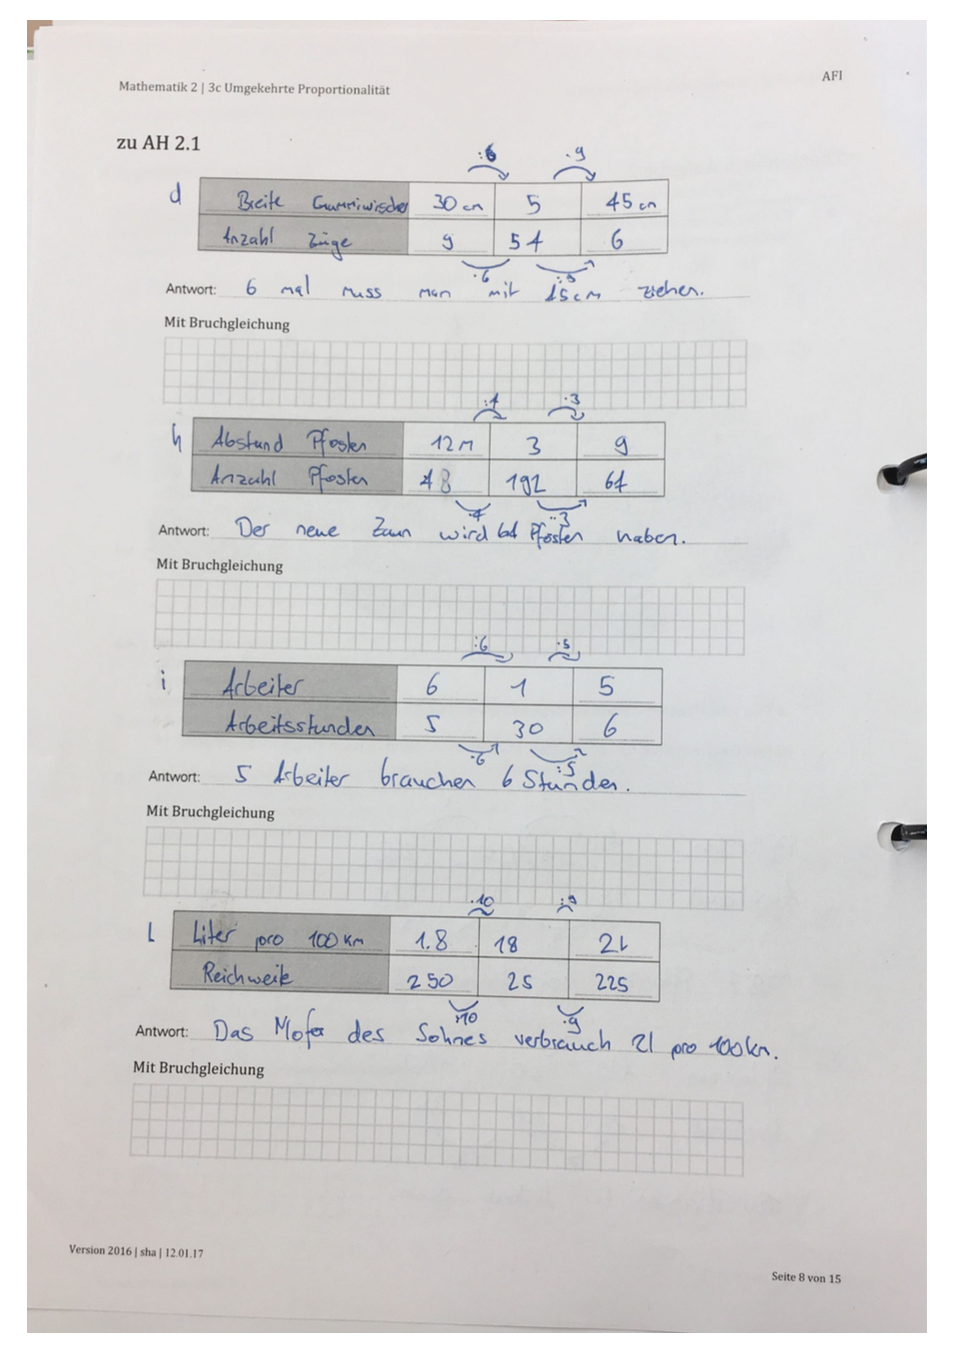 AFI
Mathematik 2 | 3c Umgekehrte Proportionalität
zu AH 2.1
:6 ·9
d Breite Gummiwischer 30 cm 5 45 cm
Anzahl Züge 9 54 6
·6 :9
Antwort: 6 mal muss man mit 45cm ziehen.
Mit Bruchgleichung
:4 ·3
h Abstand Pfosten 12 m 3 9
Anzahl Pfosten 48 192 64
·4 :3
Antwort: Der neue Zaun wird 64 Pfosten haben.
Mit Bruchgleichung
:6 ·5
i Arbeiter 6 1 5
Arbeitsstunden 5 30 6
·6 :5
Antwort: 5 Arbeiter brauchen 6 Stunden.
Mit Bruchgleichung
·10 :9
l Liter pro 100 km 1.8 18 2l
Reichweite 250 25 225
:10 ·9
Antwort: Das Mofa des Sohnes verbrauch 2l pro 100km.
Mit Bruchgleichung
Version 2016 | sha | 12.01.17
Seite 8 von 15